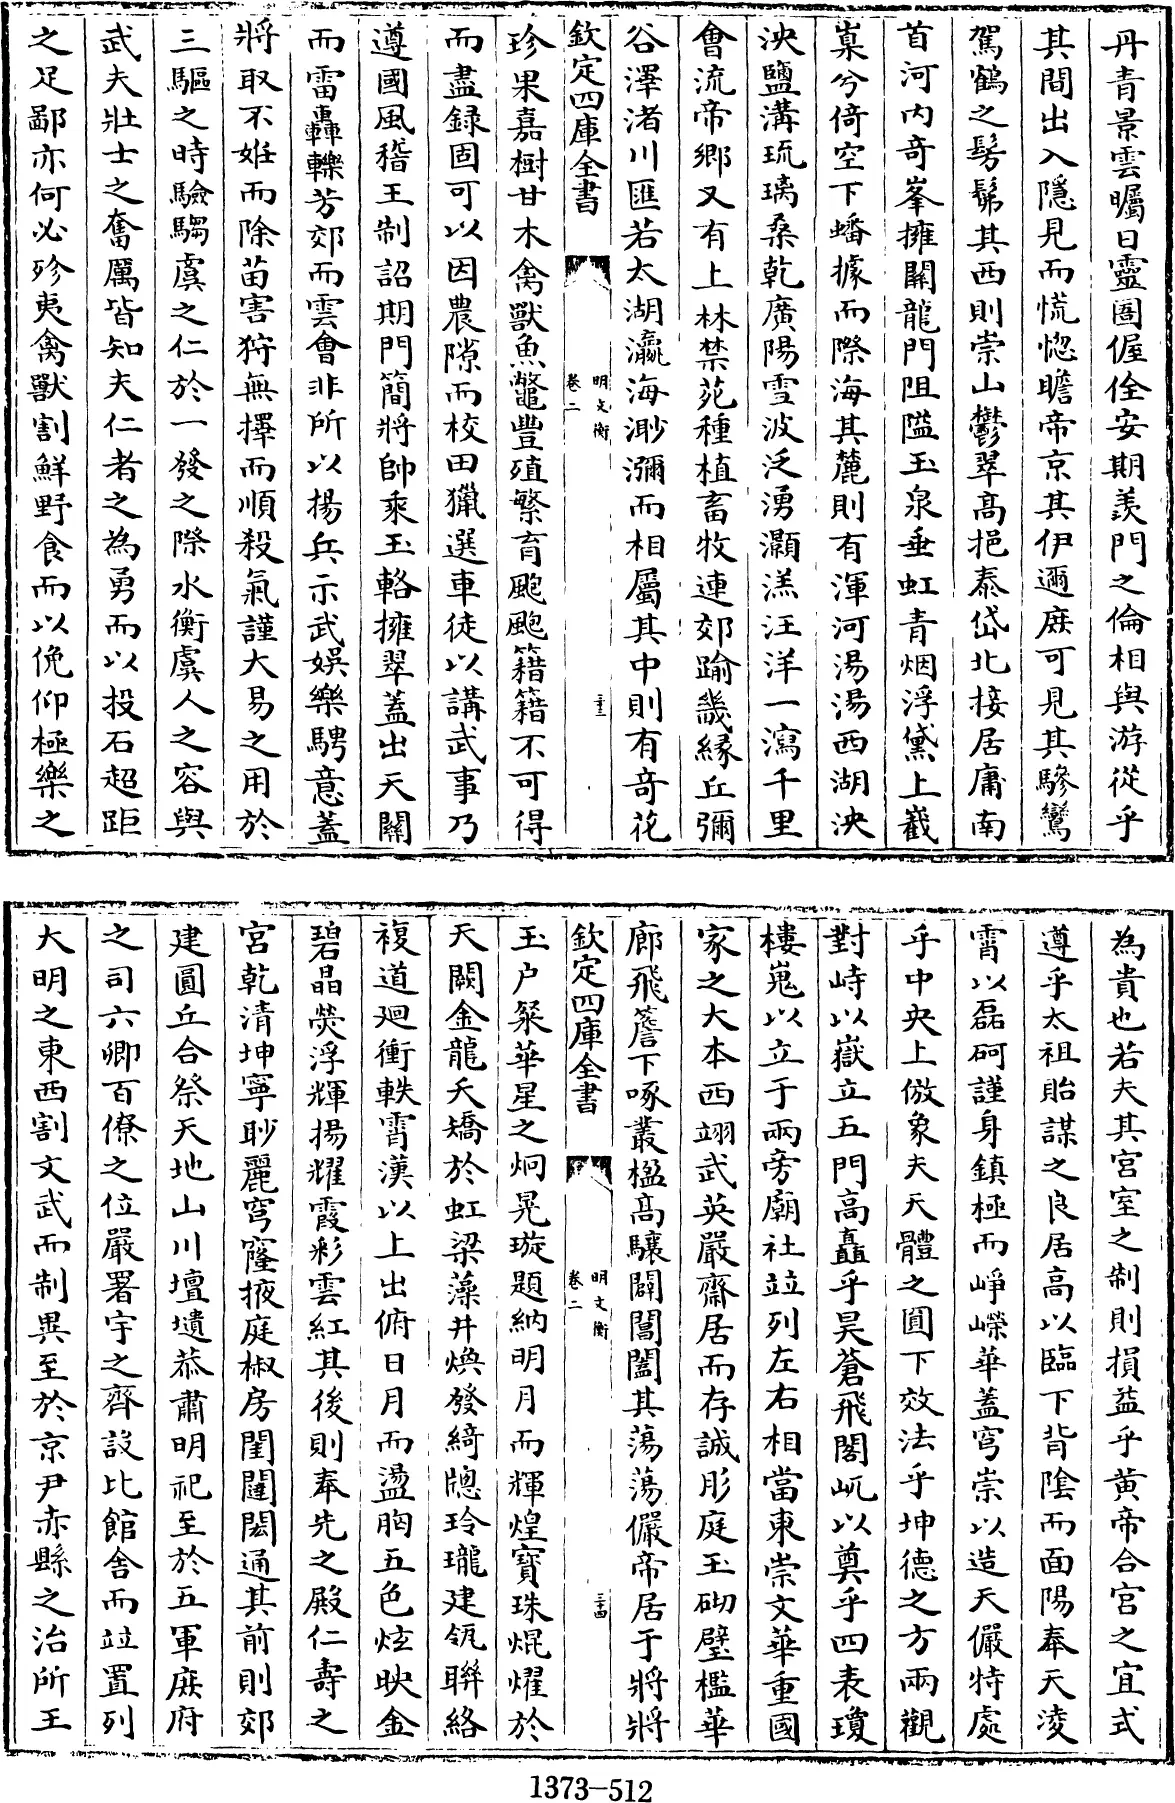 丹青景雲矚日靈圄偓佺安期羨門之倫相與游從乎
其間出入隱見而慌惚瞻帝京其伊邇庶可見其驂鸞
駕鶴之髣髴其西則崇山鬱翠高挹泰岱北接居庸南
首河内奇峯擁闢龍門阻隘玉泉垂虹青烟浮黛上截
嵬兮倚空下蟠據而際海其麓則有渾河湯湯西湖泱
泱鹽溝琉璃桑乾廣陽雪波泛湧灝溔汪洋一瀉千里
會流帝鄉又有上林禁苑種植畜牧連郊踰畿緣丘彌
谷澤渚川匯若太湖瀛海渺瀰而相屬其中則有奇花
欽定四庫全書
明文衡
卷二
二十三
珍果嘉樹甘木禽獸魚鼈豐殖繁育颰颰籍籍不可得
而盡録固可以因農隙而校田獵選車徒以講武事乃
遵國風稽王制詔期門簡將帥乘玉輅擁翠蓋出天關
而雷轟轢芳郊而雲會非所以揚兵示武娛樂騁意蓋
將取不姙而除苗害狩無擇而順殺氣謹大易之用於
三驅之時驗騶虞之仁於一發之際水衡虞人之容與
武夫壯士之奮厲皆知夫仁者之為勇而以投石超距
之足鄙亦何必殄夷禽獸割鮮野食而以俛仰極樂之
為貴也若夫其宮室之制則損益乎黄帝合宮之宜式
遵乎太祖貽謀之良居高以臨下背陰而面陽奉天凌
霄以磊砢謹身鎮極而崢嶸華蓋穹崇以造天儼特處
乎中央上倣象夫天體之圓下效法乎坤德之方兩觀
對峙以嶽立五門高矗乎昊蒼飛閣屼以奠乎四表瓊
樓嵬以立于兩旁廟社竝列左右相當東崇文華重國
家之大本西翊武英嚴齋居而存誠彤庭玉砌璧檻華
廊飛簷下啄叢楹高驤闢閶闔其蕩蕩儼帝居于將將
欽定四庫全書
明文衡
卷二
二十四
玉户粲華星之炯晃璇題納明月而輝煌寳珠焜燿於
天闕金龍夭矯於虹梁藻井煥發綺牕玲瓏建瓴聯絡
複道迴衝軼霄漢以上出俯日月而盪胸五色炫映金
碧晶熒浮輝揚耀霞彩雲紅其後則奉先之殿仁壽之
宮乾清坤寧眇麗穹窿掖庭椒房閨闥閎通其前則郊
建圓丘合祭天地山川壇壝恭肅明祀至於五軍庶府
之司六卿百僚之位嚴署宇之齊設比館舍而竝置列
大明之東西割文武而制異至於京尹赤縣之治所王
1373—512